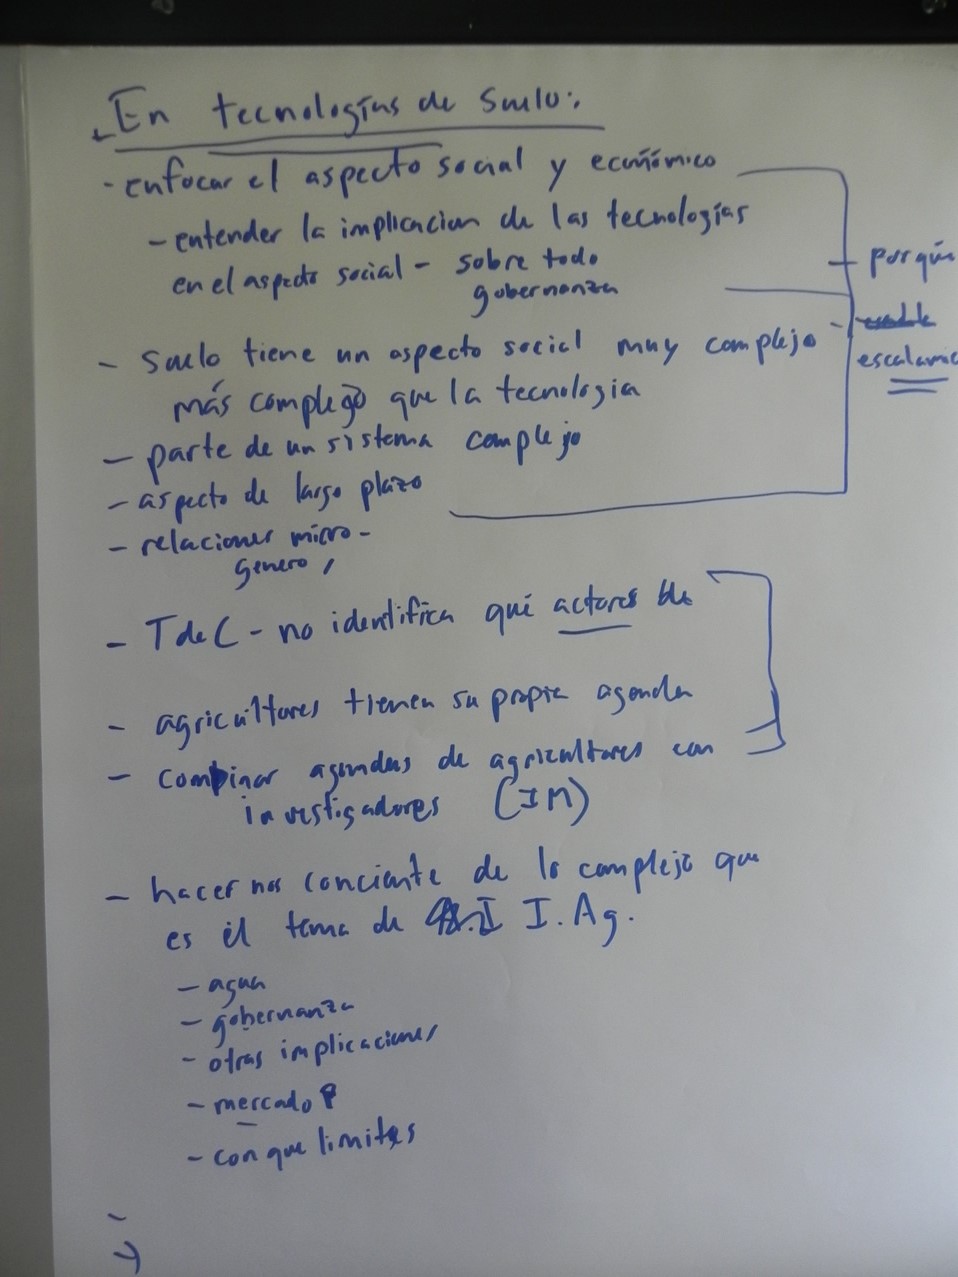 En tecnologías de suelo:
- enfocar el aspecto social y económico
- entender la implicacion de las tecnologías
en el aspecto social - sobre todo
gobernanza
porqué
escalami
- suelo tiene un aspecto social muy complejo
más complego que la tecnologia
- parte de un sistema complejo
- aspecto de largo plazo
- relaciones micro-
genero,
- T de C - no identifica qué actores
- agricultores tienen su propia agenda
- combinar agendas de agricultores con
investigadores (IM)
- hacer nos conciente de lo complejo que
es el tema de I. Ag.
- agua
- gobernanza
- otras implicaciones
- mercado
- con que limites